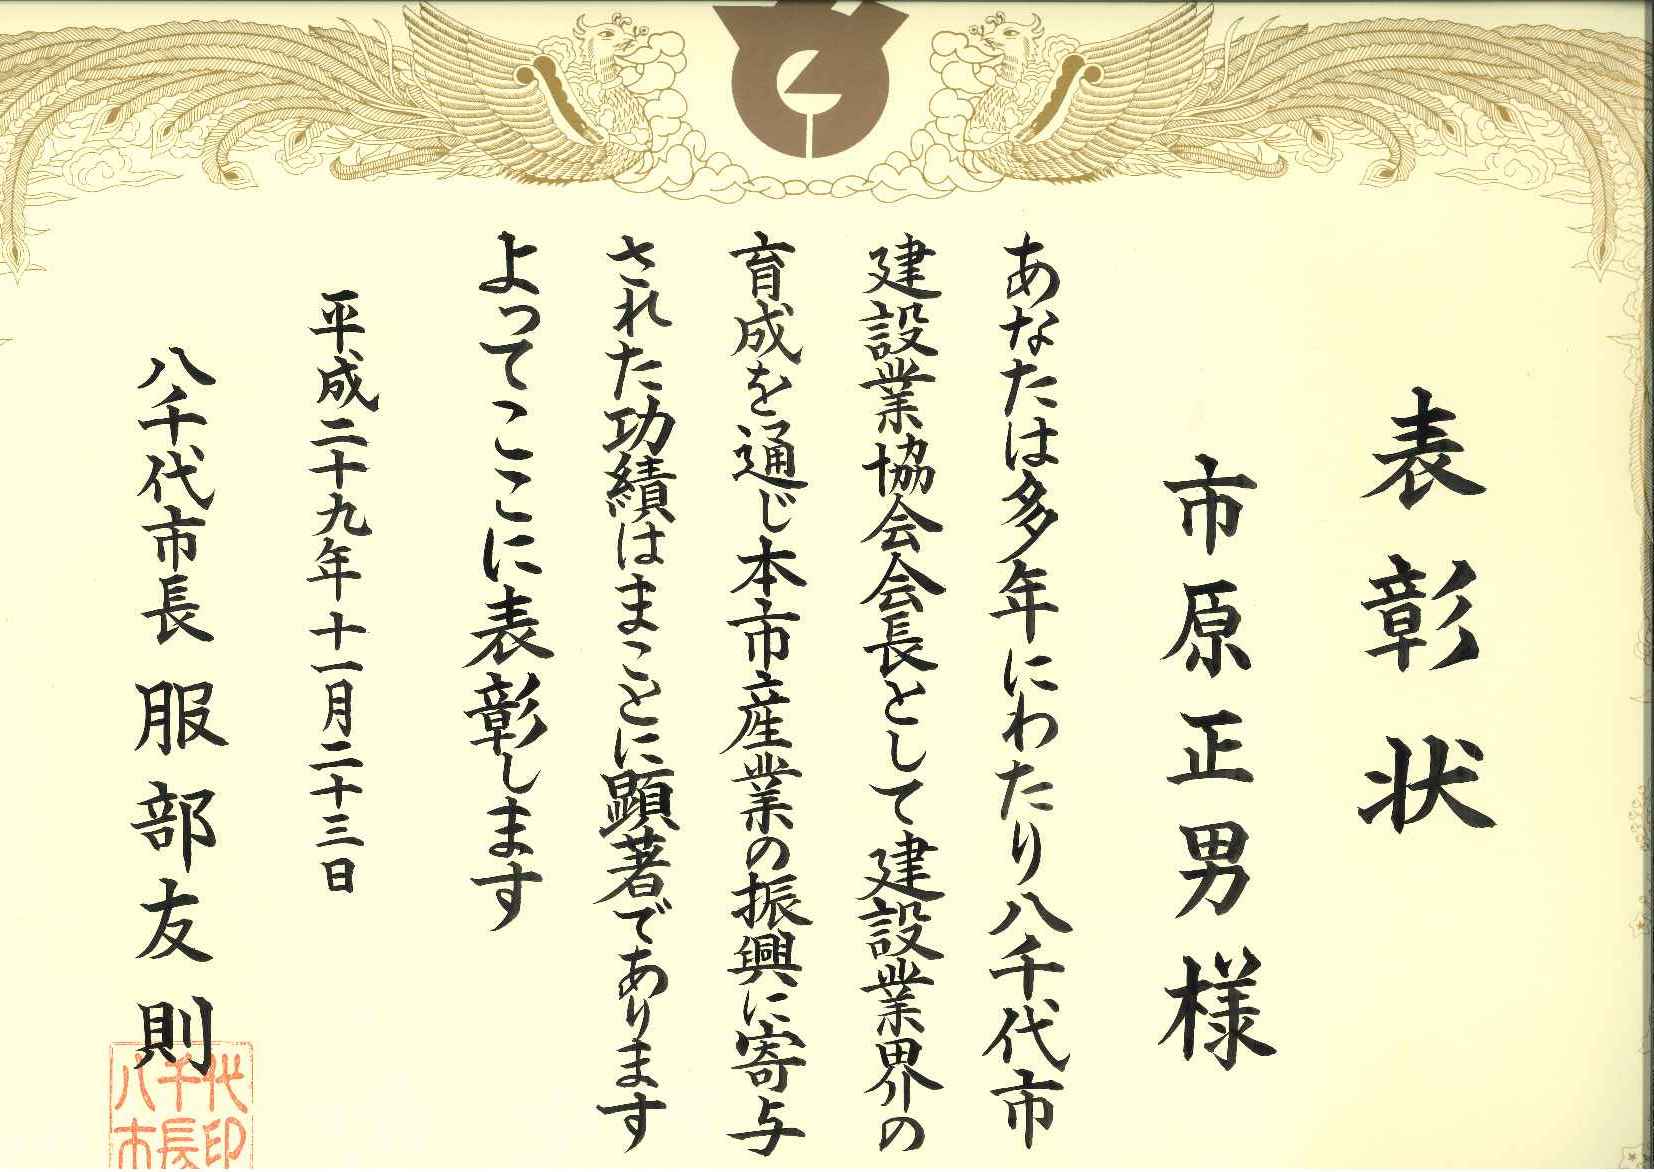 表彰状
市原正男様
あなたは多年にわたり八千代市
建設業協会会長として建設業界の
育成を通じ本市産業の振興に寄与
された功績はまことに顕著であります
よってここに表彰します
平成二十九年十一月二十三日
八千代市長 服部友則
八千代
市長印